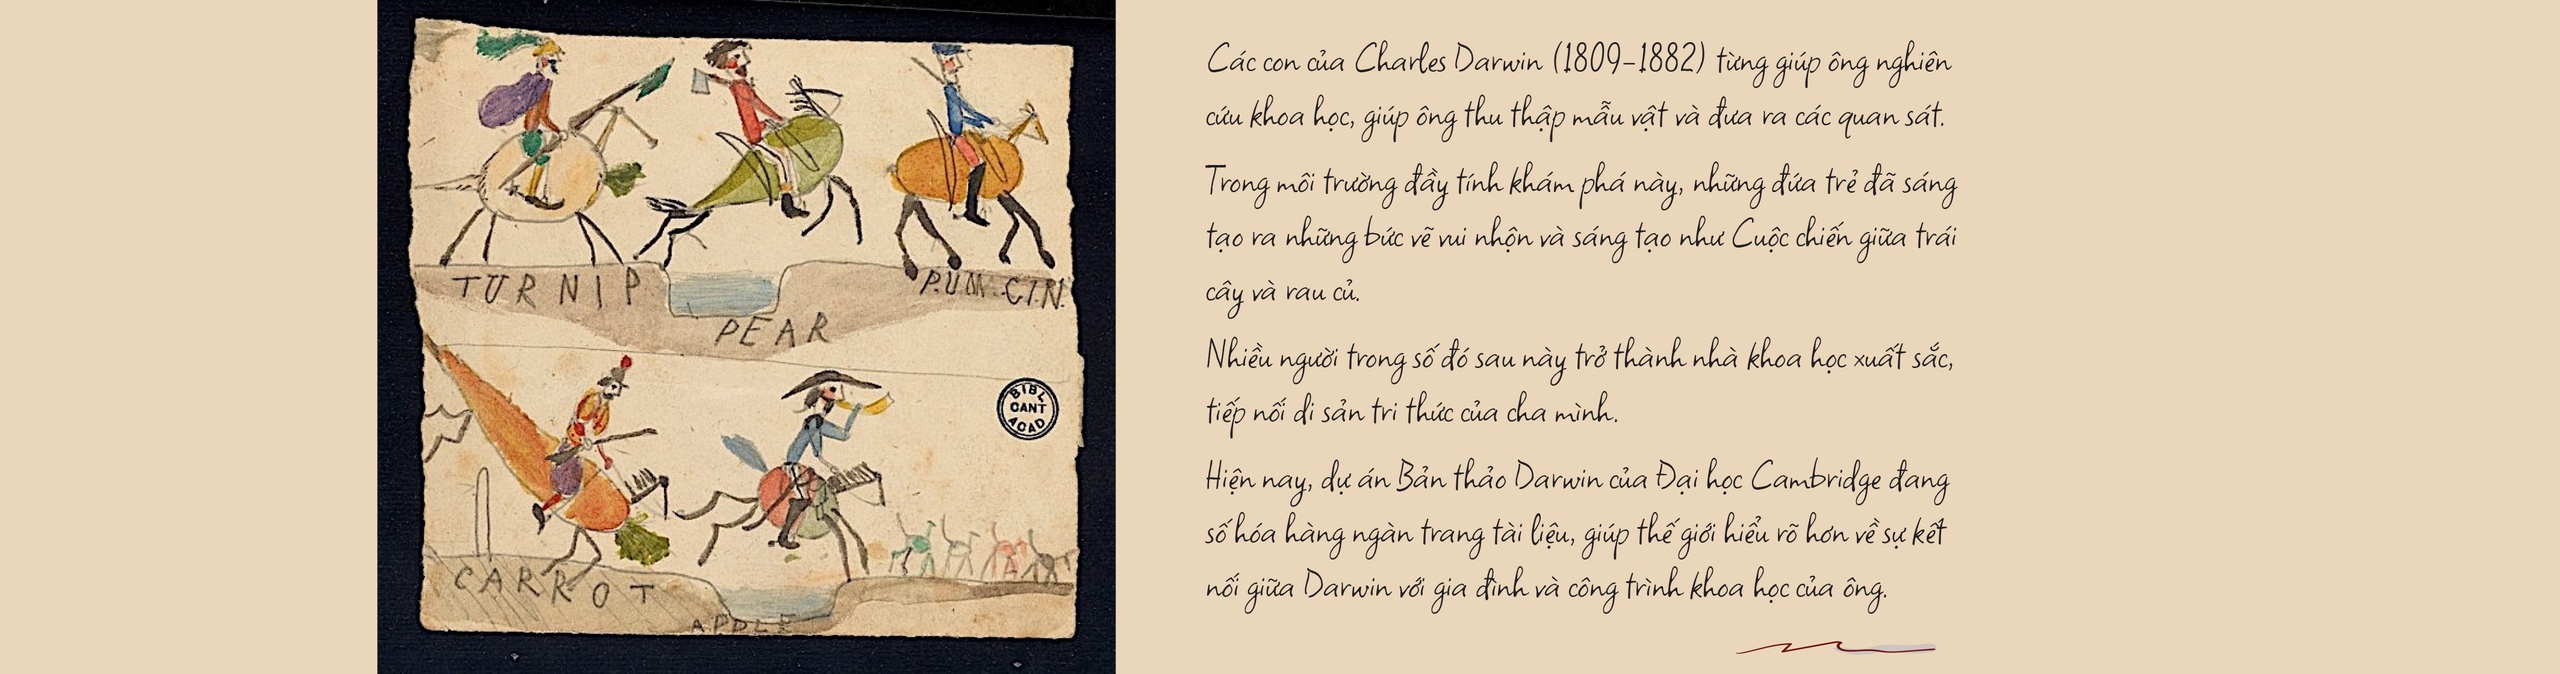 TURNIP
PUMCIN
PEAR
BIBL
CANT
ACAD
CARROT
APPLE
Các con của Charles Darwin (1809–1882) từng giúp ông nghiên
cứu khoa học, giúp ông thu thập mẫu vật và đưa ra các quan sát.
Trong môi trường đầy tính khám phá này, những đứa trẻ đã sáng
tạo ra những bức vẽ vui nhộn và sáng tạo như Cuộc chiến giữa trái
cây và rau củ.
Nhiều người trong số đó sau này trở thành nhà khoa học xuất sắc,
tiếp nối di sản tri thức của cha mình.
Hiện nay, dự án Bản thảo Darwin của Đại học Cambridge đang
số hóa hàng ngàn trang tài liệu, giúp thế giới hiểu rõ hơn về sự kết
nối giữa Darwin với gia đình và công trình khoa học của ông.